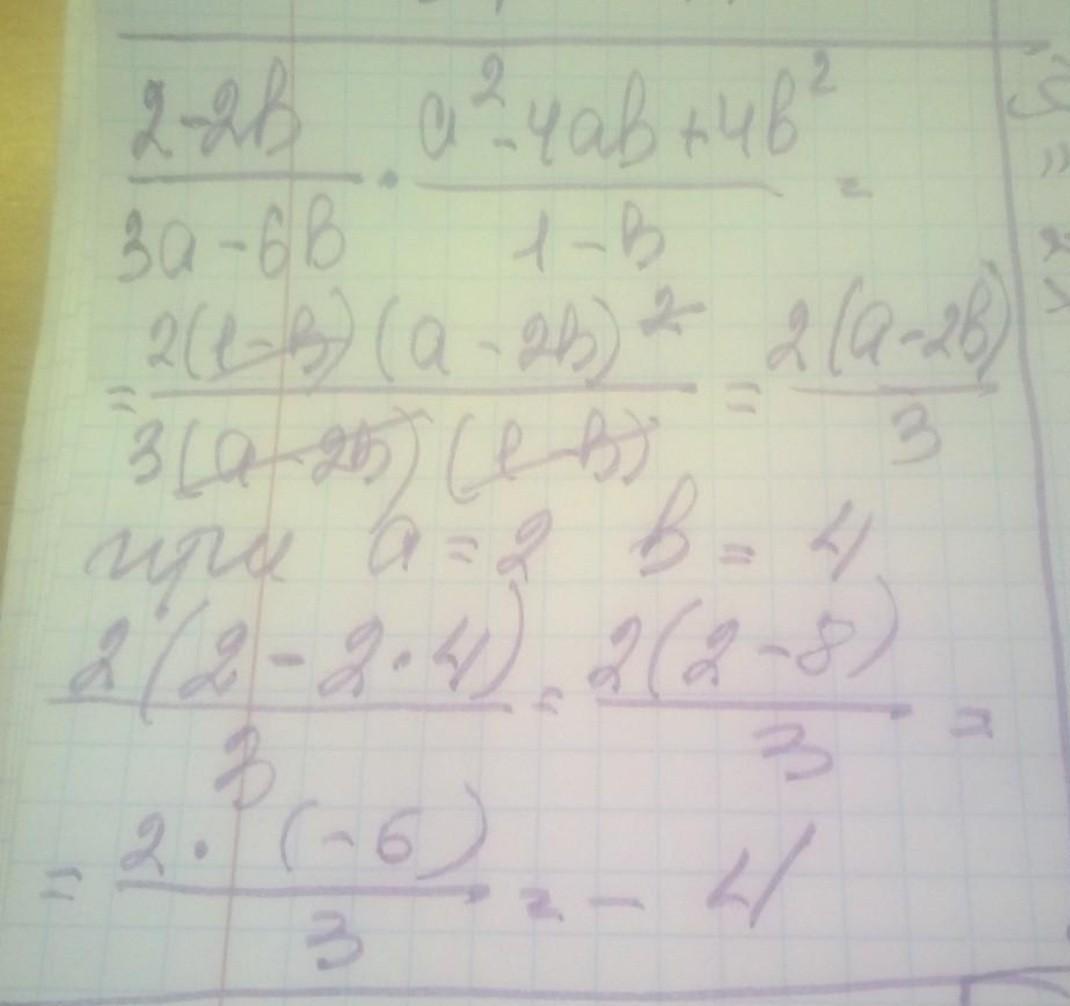 2-2b / 3a-6b · a²-4ab+4b² / 1-b =
= 2(1-b)(a-2b)² / 3(a-2b)(1-b) = 2(a-2b) / 3
при a=2 b=4
2(2-2·4) / 3 = 2(2-8) / 3 =
= 2·(-6) / 3 = -4